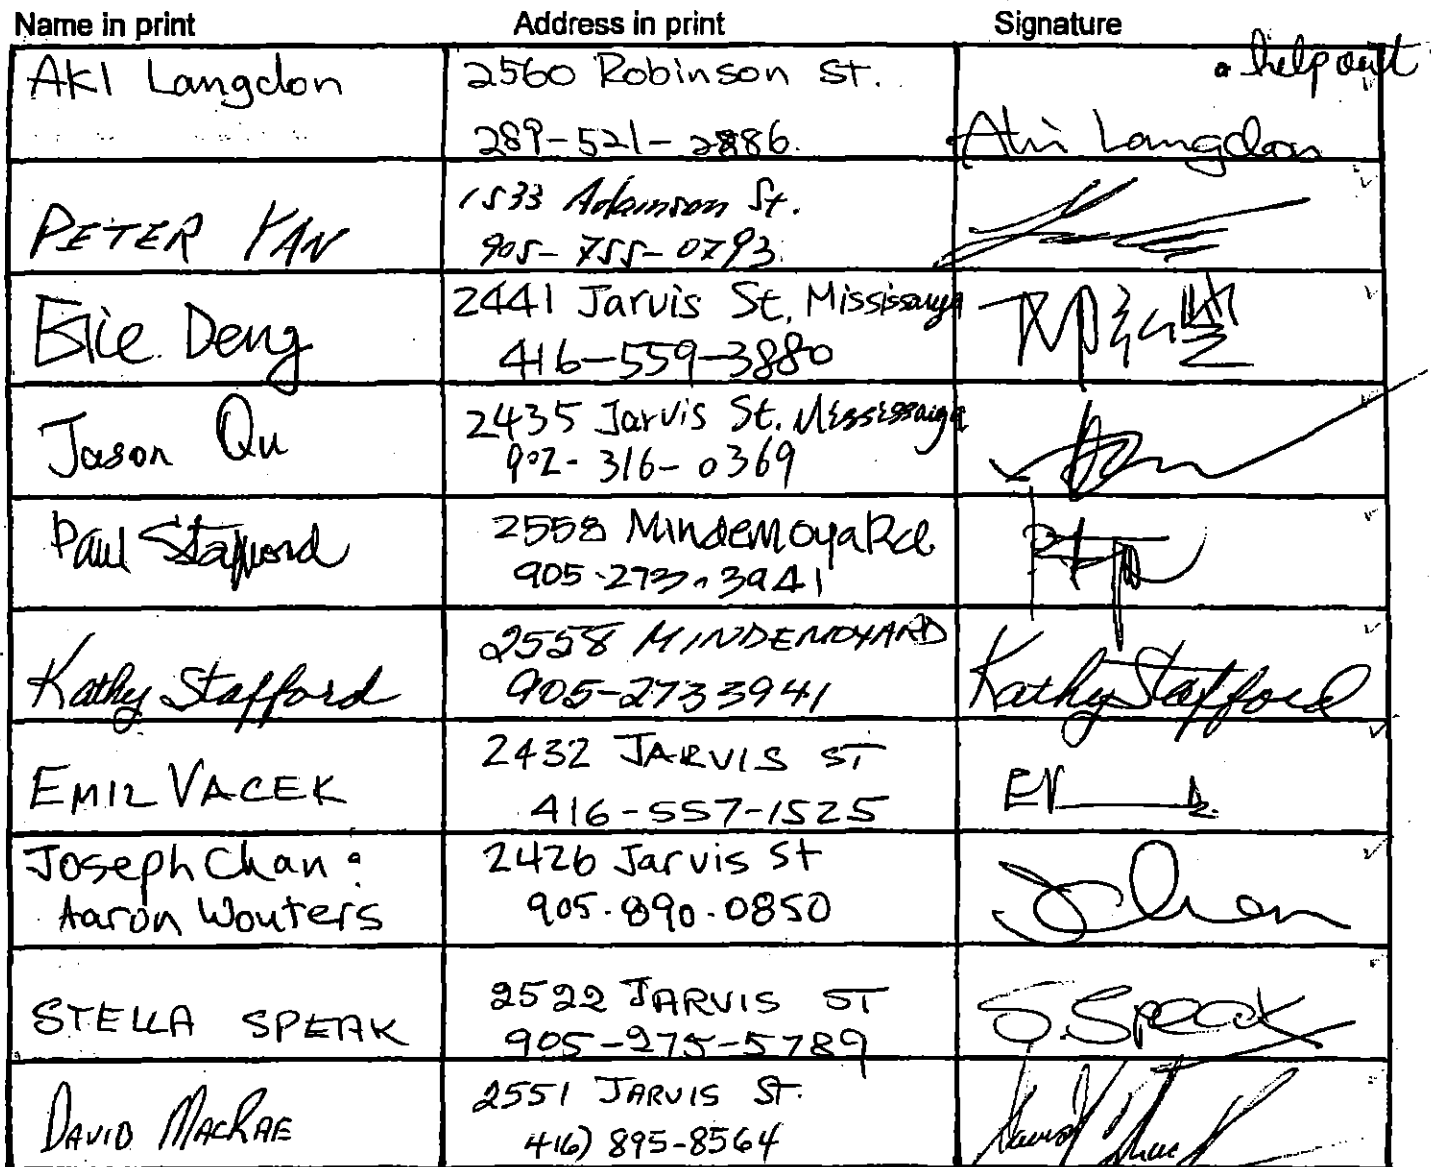 Name in print Address in print Signature
Aki Langdon 2560 Robinson St. • help out
289-521-2886. Aki Langdon
PETER YAN 1533 Adamson St.
905-755-0793
Elie Deng 2441 Jarvis St, Mississauga
416-559-3880
Jason Qu 2435 Jarvis St. Mississauga
902-316-0369
Paul Stafford 2558 Mindemoya Rd.
905-273-3941
Kathy Stafford 2558 MINDEMOYA RD Kathy Stafford
905-2733941
EMIL VACEK 2432 JARVIS ST EV
416-557-1525
Joseph Chan : 2426 Jarvis St Chan
Aaron Wouters 905.890.0850
STELLA SPEAK 2522 JARVIS ST S. Speak
905-275-5789
DAVID MACRAE 2551 JARVIS ST.
416) 895-8564